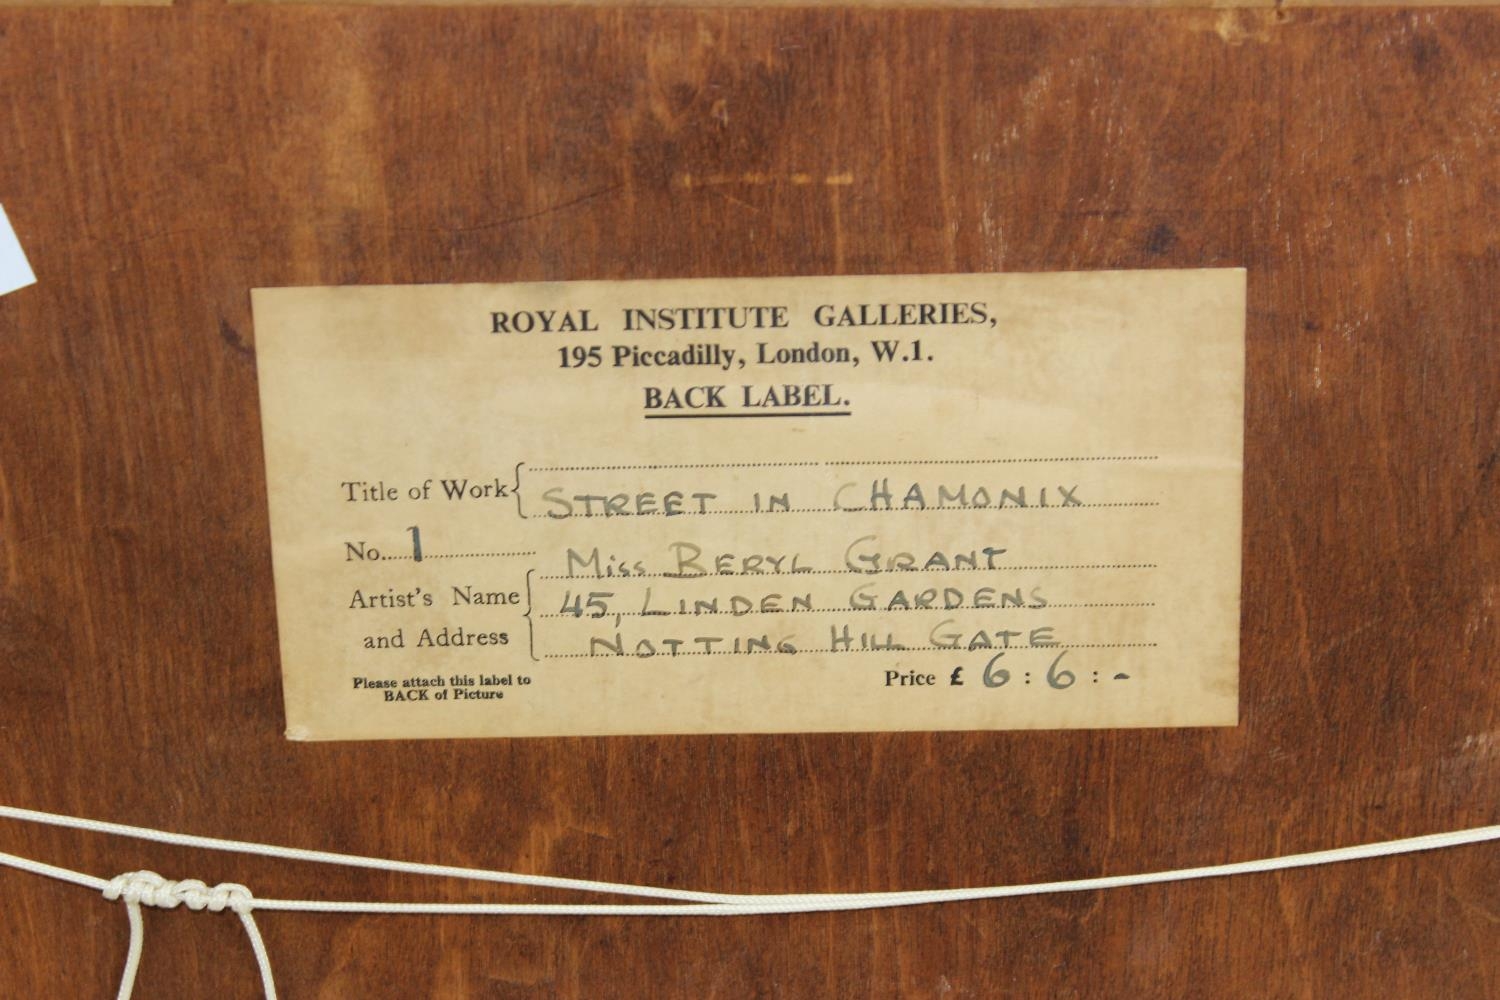 ROYAL INSTITUTE GALLERIES,
195 Piccadilly, London, W.1.
BACK LABEL.
Title of Work { STREET IN CHAMONIX
No. 1
Artist's Name and Address { MISS BERYL GRANT
45, LINDEN GARDENS
NOTTING HILL GATE
Please attach this label to
BACK of Picture
Price £ 6 : 6 : -